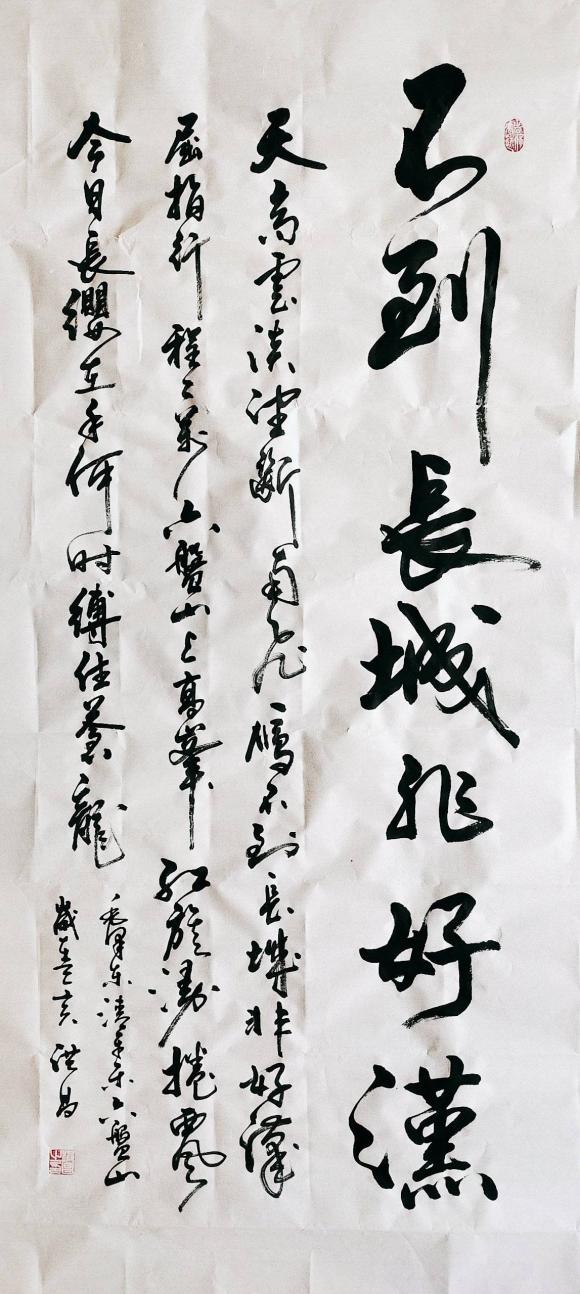 不到長城非好漢
天高雲淡望斷南飛雁不到長城非好漢
屈指行程二萬六盤山上高峯红旗漫捲西風
今日長纓在手何時縛住蒼龍
毛澤东清平乐六盤山
歲洪昌